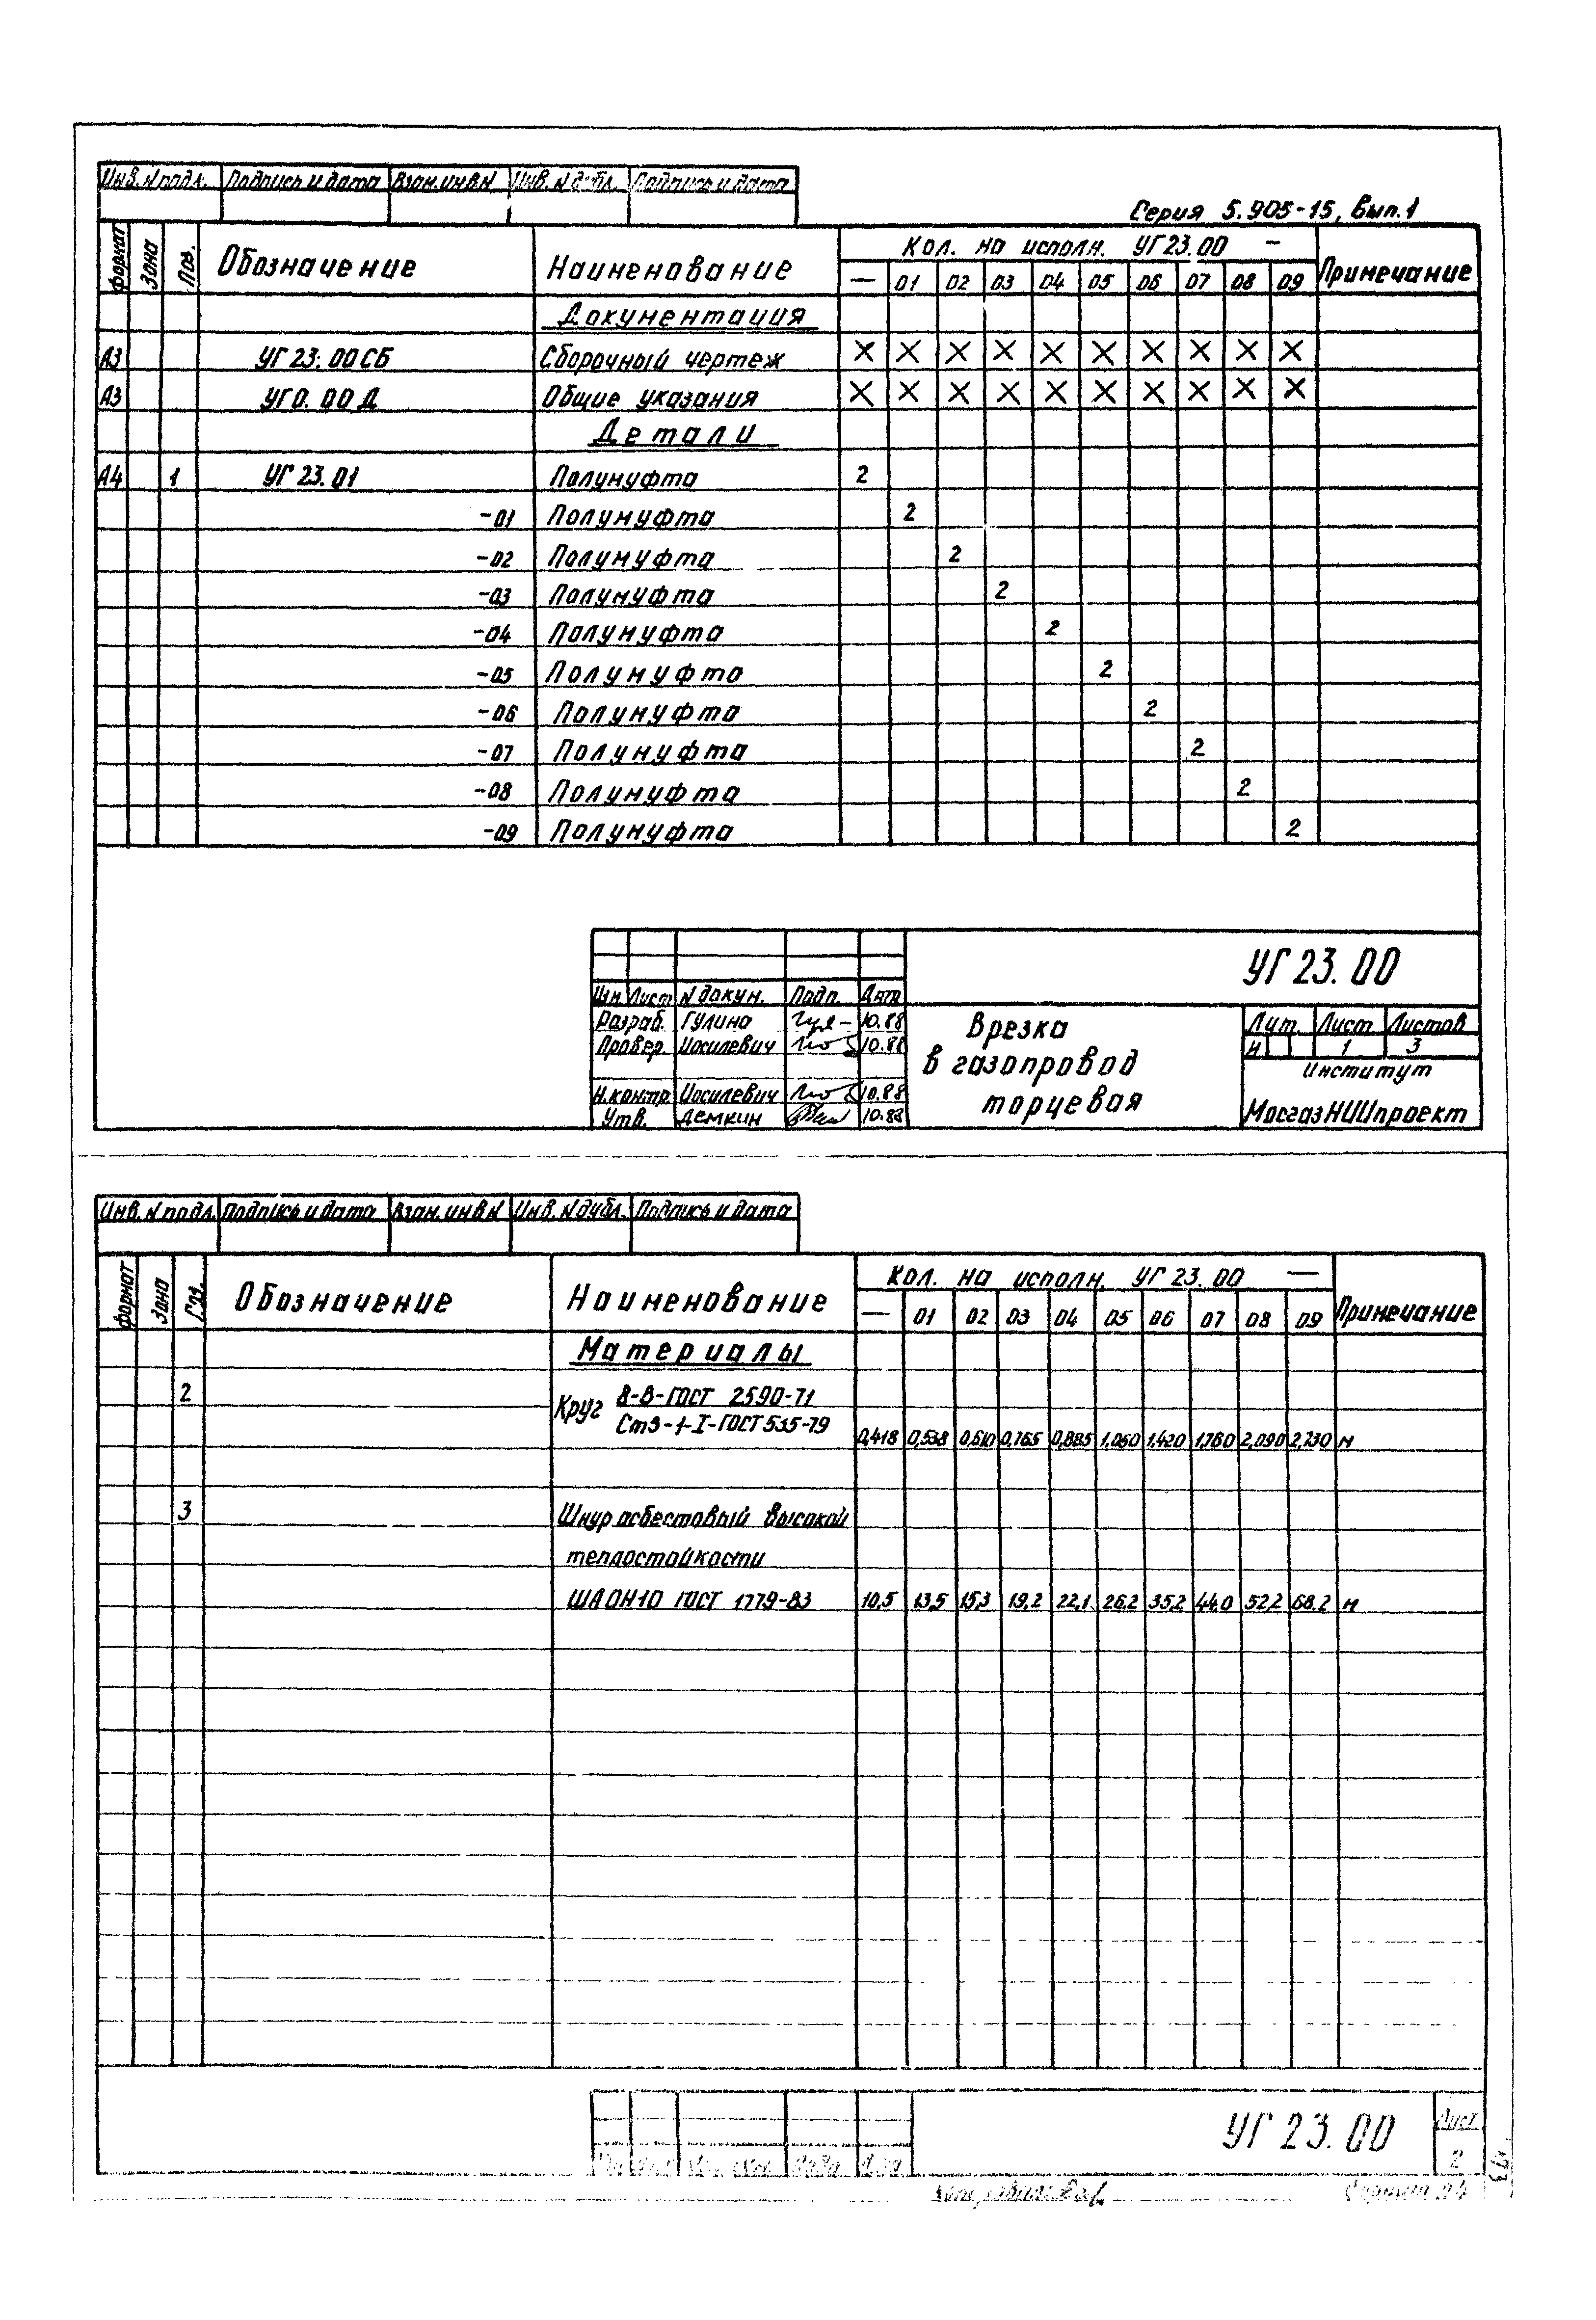 Инв.N подл. Подпись и дата Взам.инв.N Инв.N дубл. Подпись и дата
Серия 5.905-15, вып.1
формат Зона Поз. Обозначение Наименование Кол. на исполн. УГ23.00 - Примечание
— 01 02 03 04 05 06 07 08 09
Документация
А3 УГ 23.00 СБ Сборочный чертеж X X X X X X X X X X
А3 УГ0.00 Д Общие указания X X X X X X X X X X
Детали
А4 1 УГ 23.01 Полумуфта 2
-01 Полумуфта 2
-02 Полумуфта 2
-03 Полумуфта 2
-04 Полумуфта 2
-05 Полумуфта 2
-06 Полумуфта 2
-07 Полумуфта 2
-08 Полумуфта 2
-09 Полумуфта 2
УГ 23.00
Лист N докум. Подп. Дата
Разраб. Гулина 10.88
Провер. Иосилевич 10.88
Н.контр Иосилевич 10.88
Утв. Демкин 10.88
Врезка
в газопровод
торцевая
Лит. Лист Листов
И 1 3
Институт
МосгазНИИпроект
Инв.N подл. Подпись и дата Взам.инв.N Инв.N дубл. Подпись и дата
формат Зона Поз. Обозначение Наименование Кол. на исполн. УГ 23.00 — Примечание
— 01 02 03 04 05 06 07 08 09
Материалы
2 Круг 8-В-ГОСТ 2590-71
Ст3-1-I-ГОСТ 535-79
0,418 0,538 0,610 0,765 0,885 1,050 1,420 1,760 2,090 2,730 м
3 Шнур асбестовый высокой
теплостойкости
ШАОН10 ГОСТ 1779-83 10,5 13,5 15,3 19,2 22,1 26,2 35,2 44,0 52,2 68,2 м
УГ 23.00
Лист
2